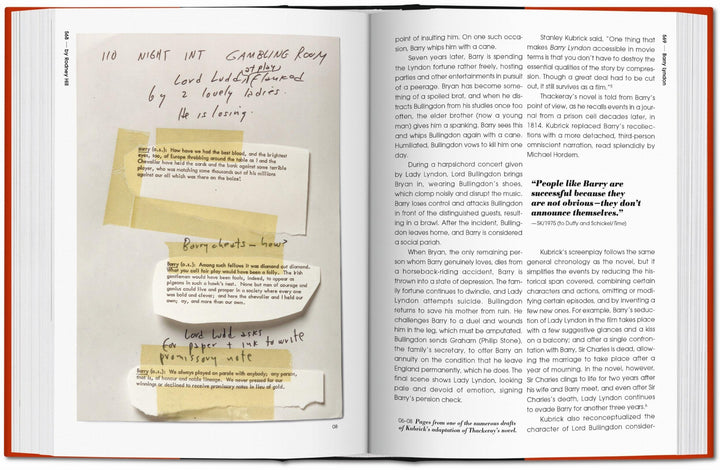 568 — by Rodney Hill
110 NIGHT INT GAMBLING ROOM
at play
Lord Ludd, flanked
by 2 lovely ladies.
He is losing.
Barry (o.s.): How have we had the best blood, and the brightest
eyes, too, of Europe throbbing around the table as I and the
Chevalier have held the cards and the bank against some terrible
player, who was matching some thousands out of his millions
against our all which was there on the baize!
Barry cheats – how?
Barry (o.s.): Among such fellows it was diamond cut diamond.
What you call fair play would have been a folly. The Irish
gentlemen would have been fools, indeed, to appear as
pigeons in such a hawk's nest. None but men of courage and
genius could live and prosper in a society where every one
was bold and clever; and here the chevalier and I held our
own; ay, and more than our own.
Lord Ludd asks
for paper + ink to write
promissory note
Barry (o.s.): We always played on parole with anybody; any person,
that is, of honour and noble lineage. We never pressed for our
winnings or declined to receive promissory notes in lieu of gold.
08
point of insulting him. On one such occa-
sion, Barry whips him with a cane.
Seven years later, Barry is spending
the Lyndon fortune rather freely, hosting
parties and other entertainments in pursuit
of a peerage. Bryan has become some-
thing of a spoiled brat, and when he dis-
tracts Bullingdon from his studies once too
often, the elder brother (now a young
man) gives him a spanking. Barry sees this
and whips Bullingdon again with a cane.
Humiliated, Bullingdon vows to kill him one
day.
During a harpsichord concert given
by Lady Lyndon, Lord Bullingdon brings
Bryan in, wearing Bullingdon's shoes,
which clomp noisily and disrupt the music.
Barry loses control and attacks Bullingdon
in front of the distinguished guests, result-
ing in a brawl. After the incident, Bulling-
don leaves home, and Barry is considered
a social pariah.
When Bryan, the only remaining per-
son whom Barry genuinely loves, dies from
a horseback-riding accident, Barry is
thrown into a state of depression. The fam-
ily fortune continues to dwindle, and Lady
Lyndon attempts suicide. Bullingdon
returns to save his mother from ruin. He
challenges Barry to a duel and wounds
him in the leg, which must be amputated.
Bullingdon sends Graham (Philip Stone),
the family's secretary, to offer Barry an
annuity on the condition that he leave
England permanently, which he does. The
final scene shows Lady Lyndon, looking
pale and devoid of emotion, signing
Barry's pension check.
06–08 Pages from one of the numerous drafts
of Kubrick's adaptation of Thackeray's novel.
Stanley Kubrick said, "One thing that
makes Barry Lyndon accessible in movie
terms is that you don't have to destroy the
essential qualities of the story by compres-
sion. Though a great deal had to be cut
out, it still survives as a film."
Thackeray's novel is told from Barry's
point of view, as he recalls events in a jour-
nal from a prison cell decades later, in
1814. Kubrick replaced Barry's recollec-
tions with a more detached, third-person
omniscient narration, read splendidly by
Michael Hordern.
"People like Barry are
successful because they
are not obvious—they don't
announce themselves."
—SK/1975 (to Duffy and Schickel/Time)
Kubrick's screenplay follows the same
general chronology as the novel, but it
simplifies the events by reducing the his-
torical span covered, combining certain
characters and actions, omitting or modi-
fying certain episodes, and by inventing a
few new ones. For example, Barry's seduc-
tion of Lady Lyndon in the film takes place
with a few suggestive glances and a kiss
on a balcony; and after a single confron-
tation with Barry, Sir Charles is dead, allow-
ing the marriage to take place after a
year of mourning. In the novel, however,
Sir Charles clings to life for two years after
his wife and Barry meet, and even after Sir
Charles's death, Lady Lyndon continues
to evade Barry for another three years.
Kubrick also reconceptualized the
character of Lord Bullingdon consider-
569 — Barry Lyndon